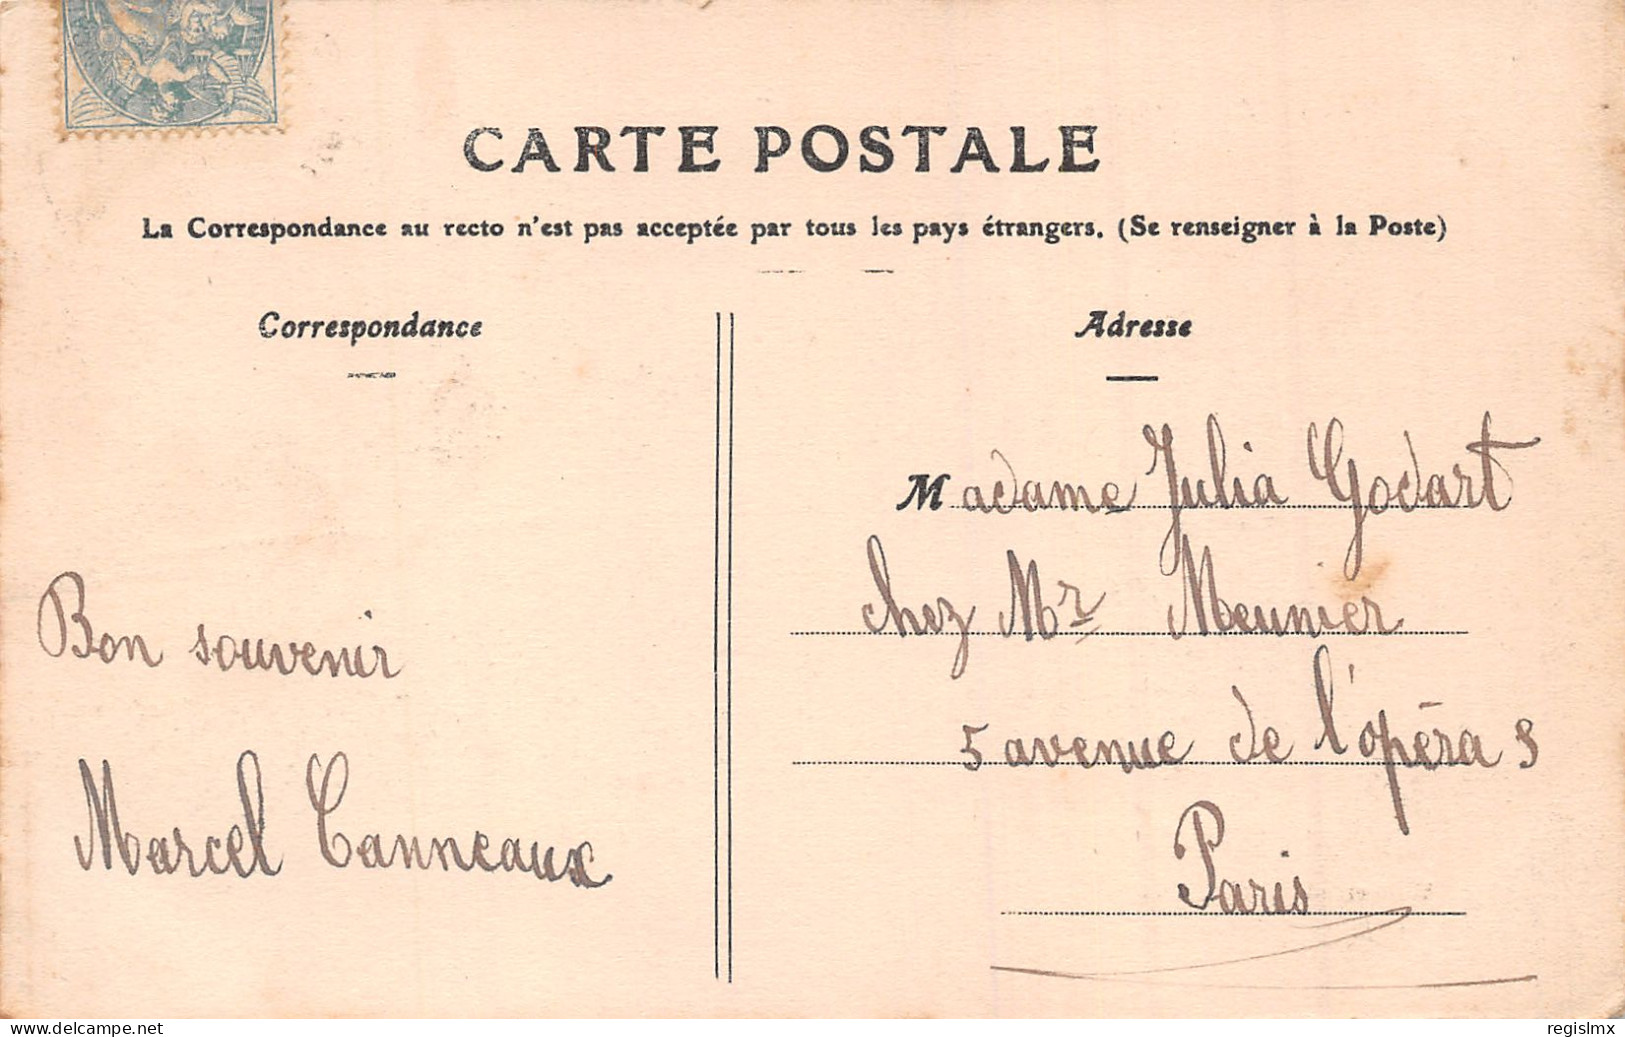 CARTE POSTALE
La Correspondance au recto n'est pas acceptée par tous les pays étrangers. (Se renseigner à la Poste)
Correspondance
Bon souvenir
Marcel Canneaux
Adresse
Madame Julia Godart
chez Mr Meunier
5 avenue de l'opéra 5
Paris
www.delcampe.net
regislmx